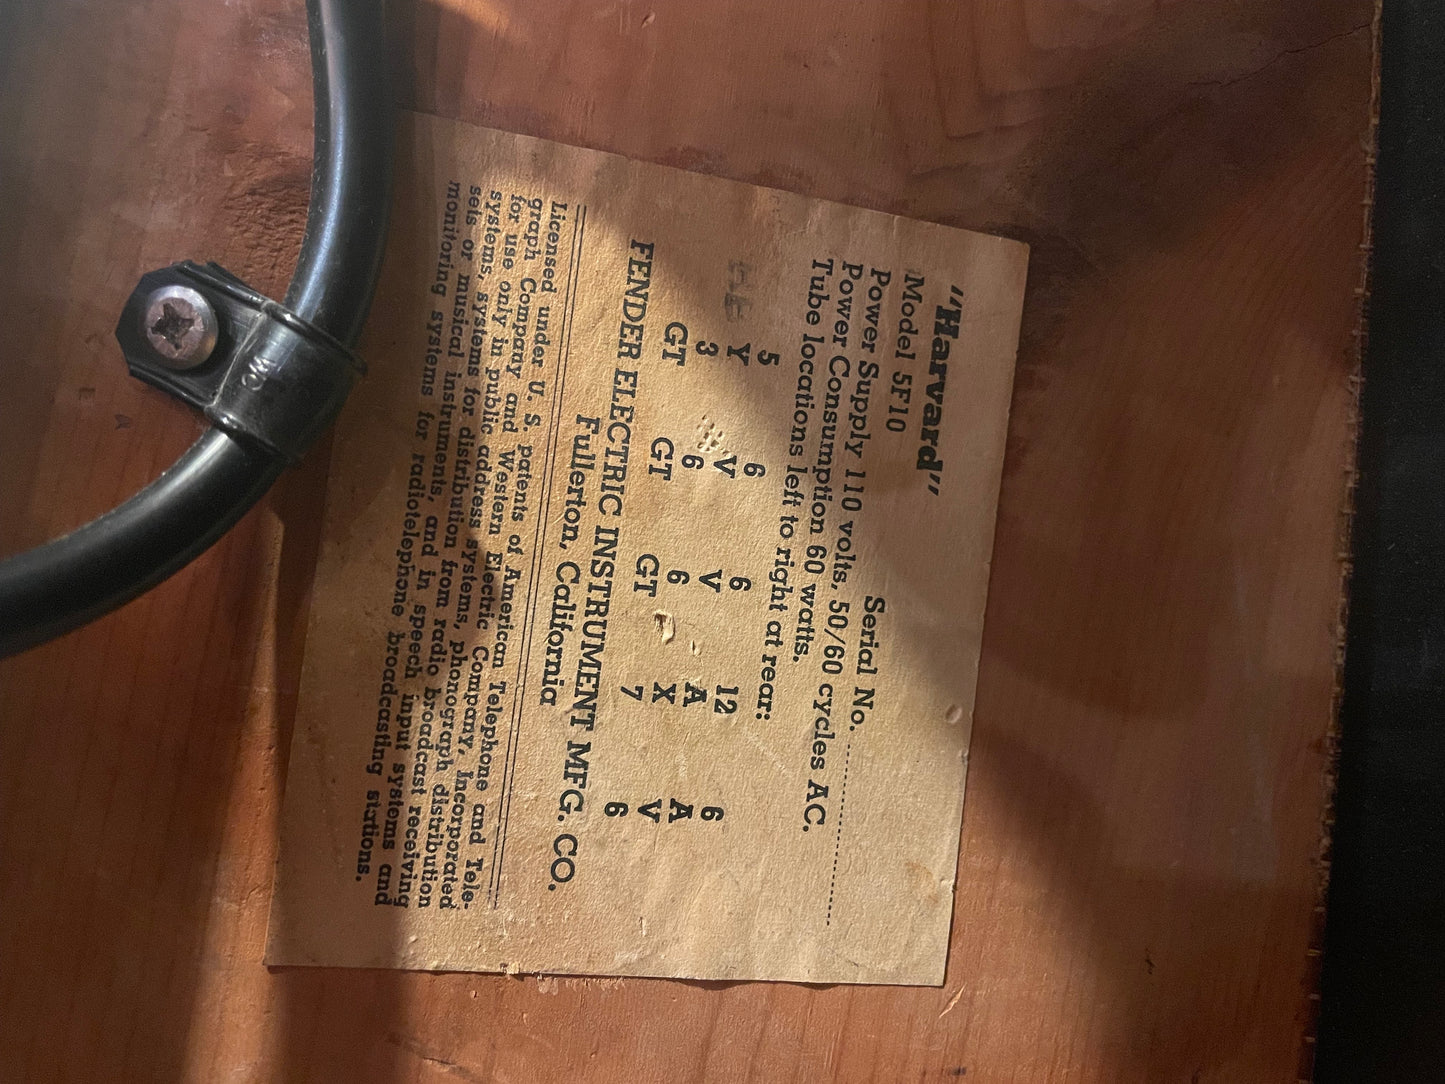 "Harvard"
Model 5F10 Serial No. ..............................
Power Supply 110 volts, 50/60 cycles AC.
Power Consumption 60 watts.
Tube locations left to right at rear:
5 6 6 12 6
Y V V A A
3 6 6 X V
GT GT GT 7 6
FENDER ELECTRIC INSTRUMENT MFG. CO.
Fullerton, California
Licensed under U. S. patents of American Telephone and Tele-
graph Company and Western Electric Company, Incorporated
for use only in public address systems, phonograph distribution
systems, systems for distribution from radio broadcast receiving
sets or musical instruments, and in speech input systems and
monitoring systems for radiotelephone broadcasting stations.